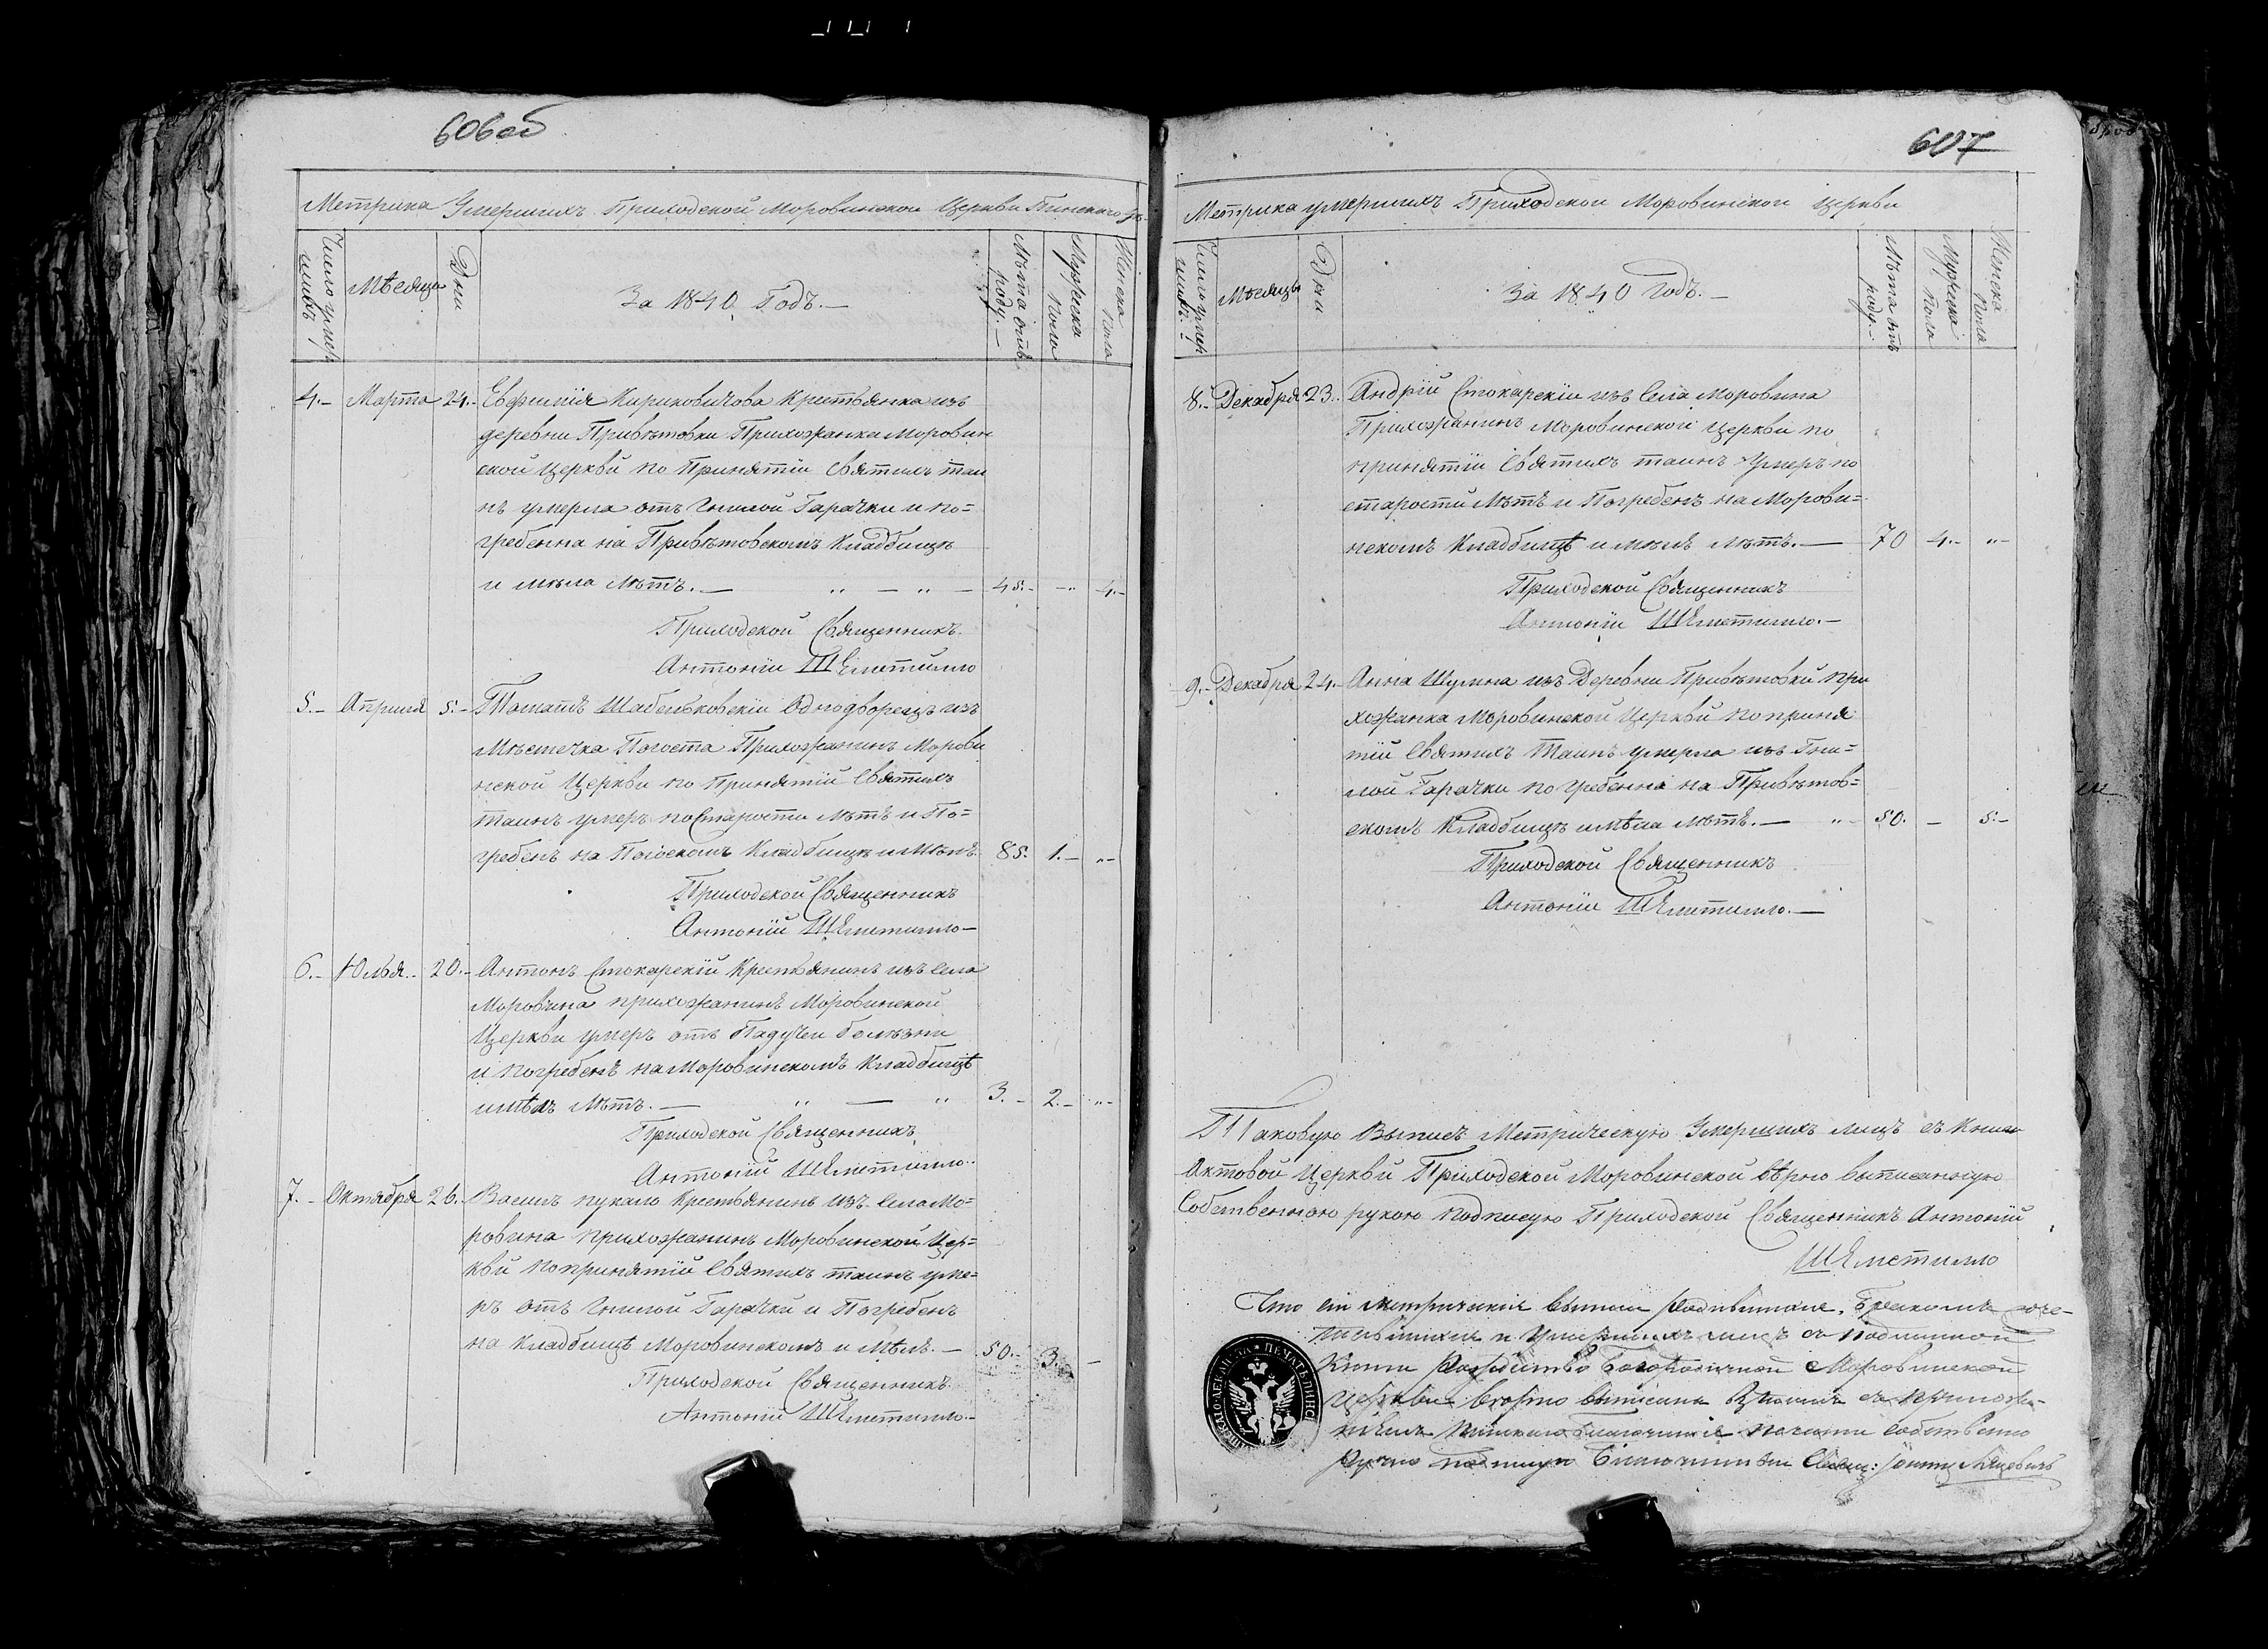 606 об
Метрика Умершихъ Приходской Моровинской Церкви Пинскаго
Число умер
шихъ
Мѣсяцы
Дни
За 1840 Годъ. —
Лѣта отъ
роду. —
Мужеска
Пола
Женска
Пола
4. — Марта 24. — Евфимія Кириковичова Крестьянка изъ
деревни Привѣтовки Прихожанка Моровин
ской Церкви по Принятіи Святихъ таи
нъ умерла отъ Гнилой Гарачки и по=
гребенна на Привѣтовскомъ Кладбищѣ
и мѣла Лѣтъ. — „ — „ — 45. — — „ 4. —
Приходской Священникъ
Антоній Шеметилло
5. — Апрыля 5. — Томашъ Шабельковскій Однодворецъ изъ
Мѣстечка Погоста Прихожанинъ Морови
нской Церкви по Принятій Святихъ
таинъ умеръ по Старости Лѣтъ и По=
гребенъ на Погоскомъ Кладбищѣ и Мѣлъ 85. 1. — „ —
Приходской Священникъ
Антоній Шеметилло —
6. — Юлья. — 20. — Антонъ Стокарскій Крестьянинъ изъ Села
Моровина прихожанинъ Моровинской
Церкви умеръ отъ Падучей болѣзни
и погребенъ на Моровинскомъ Кладбищѣ
имѣлъ Лѣтъ. — „ — „ 3. — 2. — „ —
Приходской Священникъ
Антоній Шеметилло.
7. — Октября 26. — Василь пукало Крестьянинъ Изъ Села Мо=
ровина прихожанинъ Моровинской Цер=
кви попринятій Святихъ таинъ уме=
ръ отъ Гнилой Гарачки и Погребенъ
на Кладбищѣ Моровинскомъ и Мѣлъ. — 50. — 3. —
Приходской Священникъ
Антоній Шеметилло. —
607
Метрика умершихъ Приходской Моровинской Церкви
Число умер
шихъ.
Мѣсяцы
Дни
За 1840 Годъ. —
Лѣта отъ
роду. —
Мужеска
Пола
Женска
Пола
8. — Декабря 23. Андрій Стокарскіи изъ Села Моровина
Прихожанинъ Моровинской Церкви по
принятіи Святихъ таинъ Умеръ по
старости Лѣтъ и Погребенъ на Морови=
нскомъ Кладбищѣ и мѣлъ лѣтъ. — 70 4. — „ —
Приходской Священникъ
Антоній Шеметилло. —
9. — Декабря 24. — Анна Шулина изъ Деревни Привѣтовки при
хожанка Моровинской Церкви по приня
тій Святихъ Таинъ умерла изъ Гни=
лой Гарачки погребенна на Привѣтов=
скомъ Кладбищѣ имѣла Лѣтъ. — „ — 50. — 5. —
Приходской Священникъ
Антоній Шеметилло. —
Таковую Выпись Метрическую Умершихъ лицъ съ Книги
Актовой Церкви Приходской Моровинской вѣрно выписанную
Собственною рукою подписую Приходской Священникъ Антоній
Шеметилло
Что сіи Метрическія выписи Бракомъ соче-
тавшихся и Умершихъ лицъ съ подлинной
Книги Рождество Богородичной Моровинской
Церкви вѣрно выписаны въ томъ съ приложе-
ніемъ печати собственно
ручно подпишу Благочинный Свящ:
ПЕЧАТЬ ПИНСКАГО